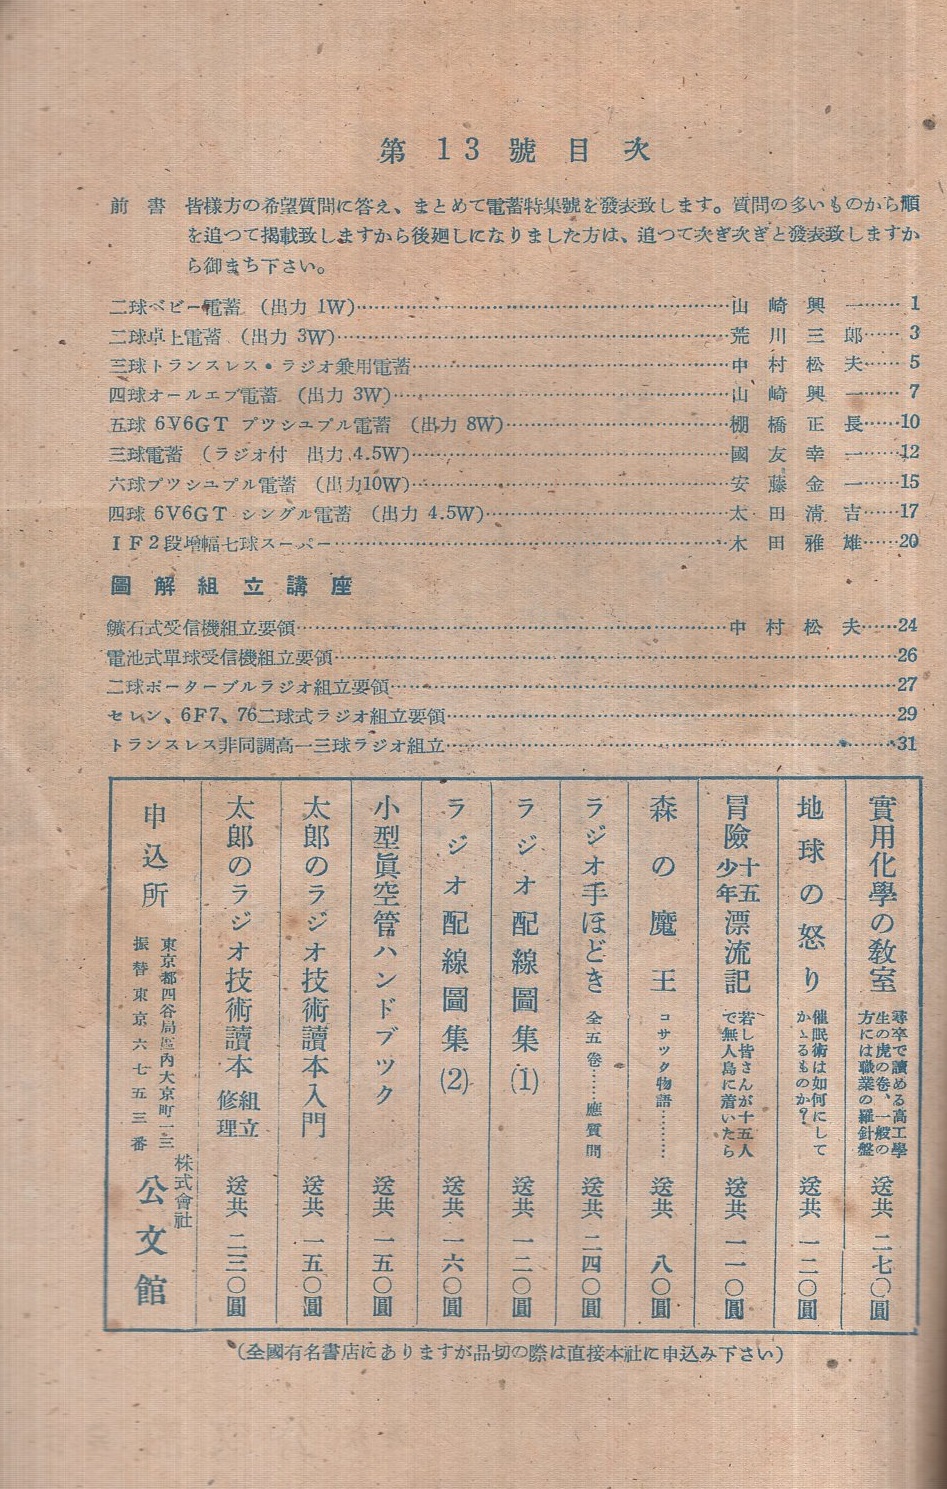 第 13 號 目 次
前 書 皆樣方の希望質問に答え、まとめて電蓄特集號を發表致します。質問の多いものから順
を追つて揭載致しますから後廻しになりました方は、追つて次ぎ次ぎと發表致しますか
ら御まち下さい。
二球ベビー電蓄 (出力 1W)……山 崎 興 一……1
二球卓上電蓄 (出力 3W)……荒 川 三 郎……3
三球トランスレス・ラジオ兼用電蓄……中 村 松 夫……5
四球オールエブ電蓄 (出力 3W)……山 崎 興 一……7
五球 6V6GT プツシユプル電蓄 (出力 8W)……棚 橋 正 長……10
三球電蓄 (ラジオ付 出力 4.5W)……國 友 幸 一……12
六球プツシユプル電蓄 (出力10W)……安 藤 金 一……15
四球 6V6GT シングル電蓄 (出力 4.5W)……太 田 淸 吉……17
IF2段增幅七球スーパー……木 田 雅 雄……20
圖 解 組 立 講 座
鑛石式受信機組立要領……中 村 松 夫……24
電池式單球受信機組立要領……26
二球ポータブルラジオ組立要領……27
セレン、6F7、76二球式ラジオ組立要領……29
トランスレス非同調高一三球ラジオ組立……31
實用化學の敎室 尋卒で讀める高工學生の虎の卷、一般の方には職業の羅針盤 送共 二七〇圓
地球の怒り 催眠術は如何にしてかゝるものか? 送共 一二〇圓
冒險十五少年漂流記 若し皆さんが十五人で無人島に着いたら 送共 一一〇圓
森の魔王 コサツク物語……… 送共 八〇圓
ラジオ手ほどき 全五卷……應質問 送共 二四〇圓
ラジオ配線圖集(1) 送共 一二〇圓
ラジオ配線圖集(2) 送共 一六〇圓
小型眞空管ハンドブツク 送共 一五〇圓
太郎のラジオ技術讀本入門 送共 一五〇圓
太郎のラジオ技術讀本 組立修理 送共 二三〇圓
申込所
東京都四谷局區內大京町一三
振替東京六七五三番
株式會社 公文館
(全國有名書店にありますが品切の際は直接本社に申込み下さい)